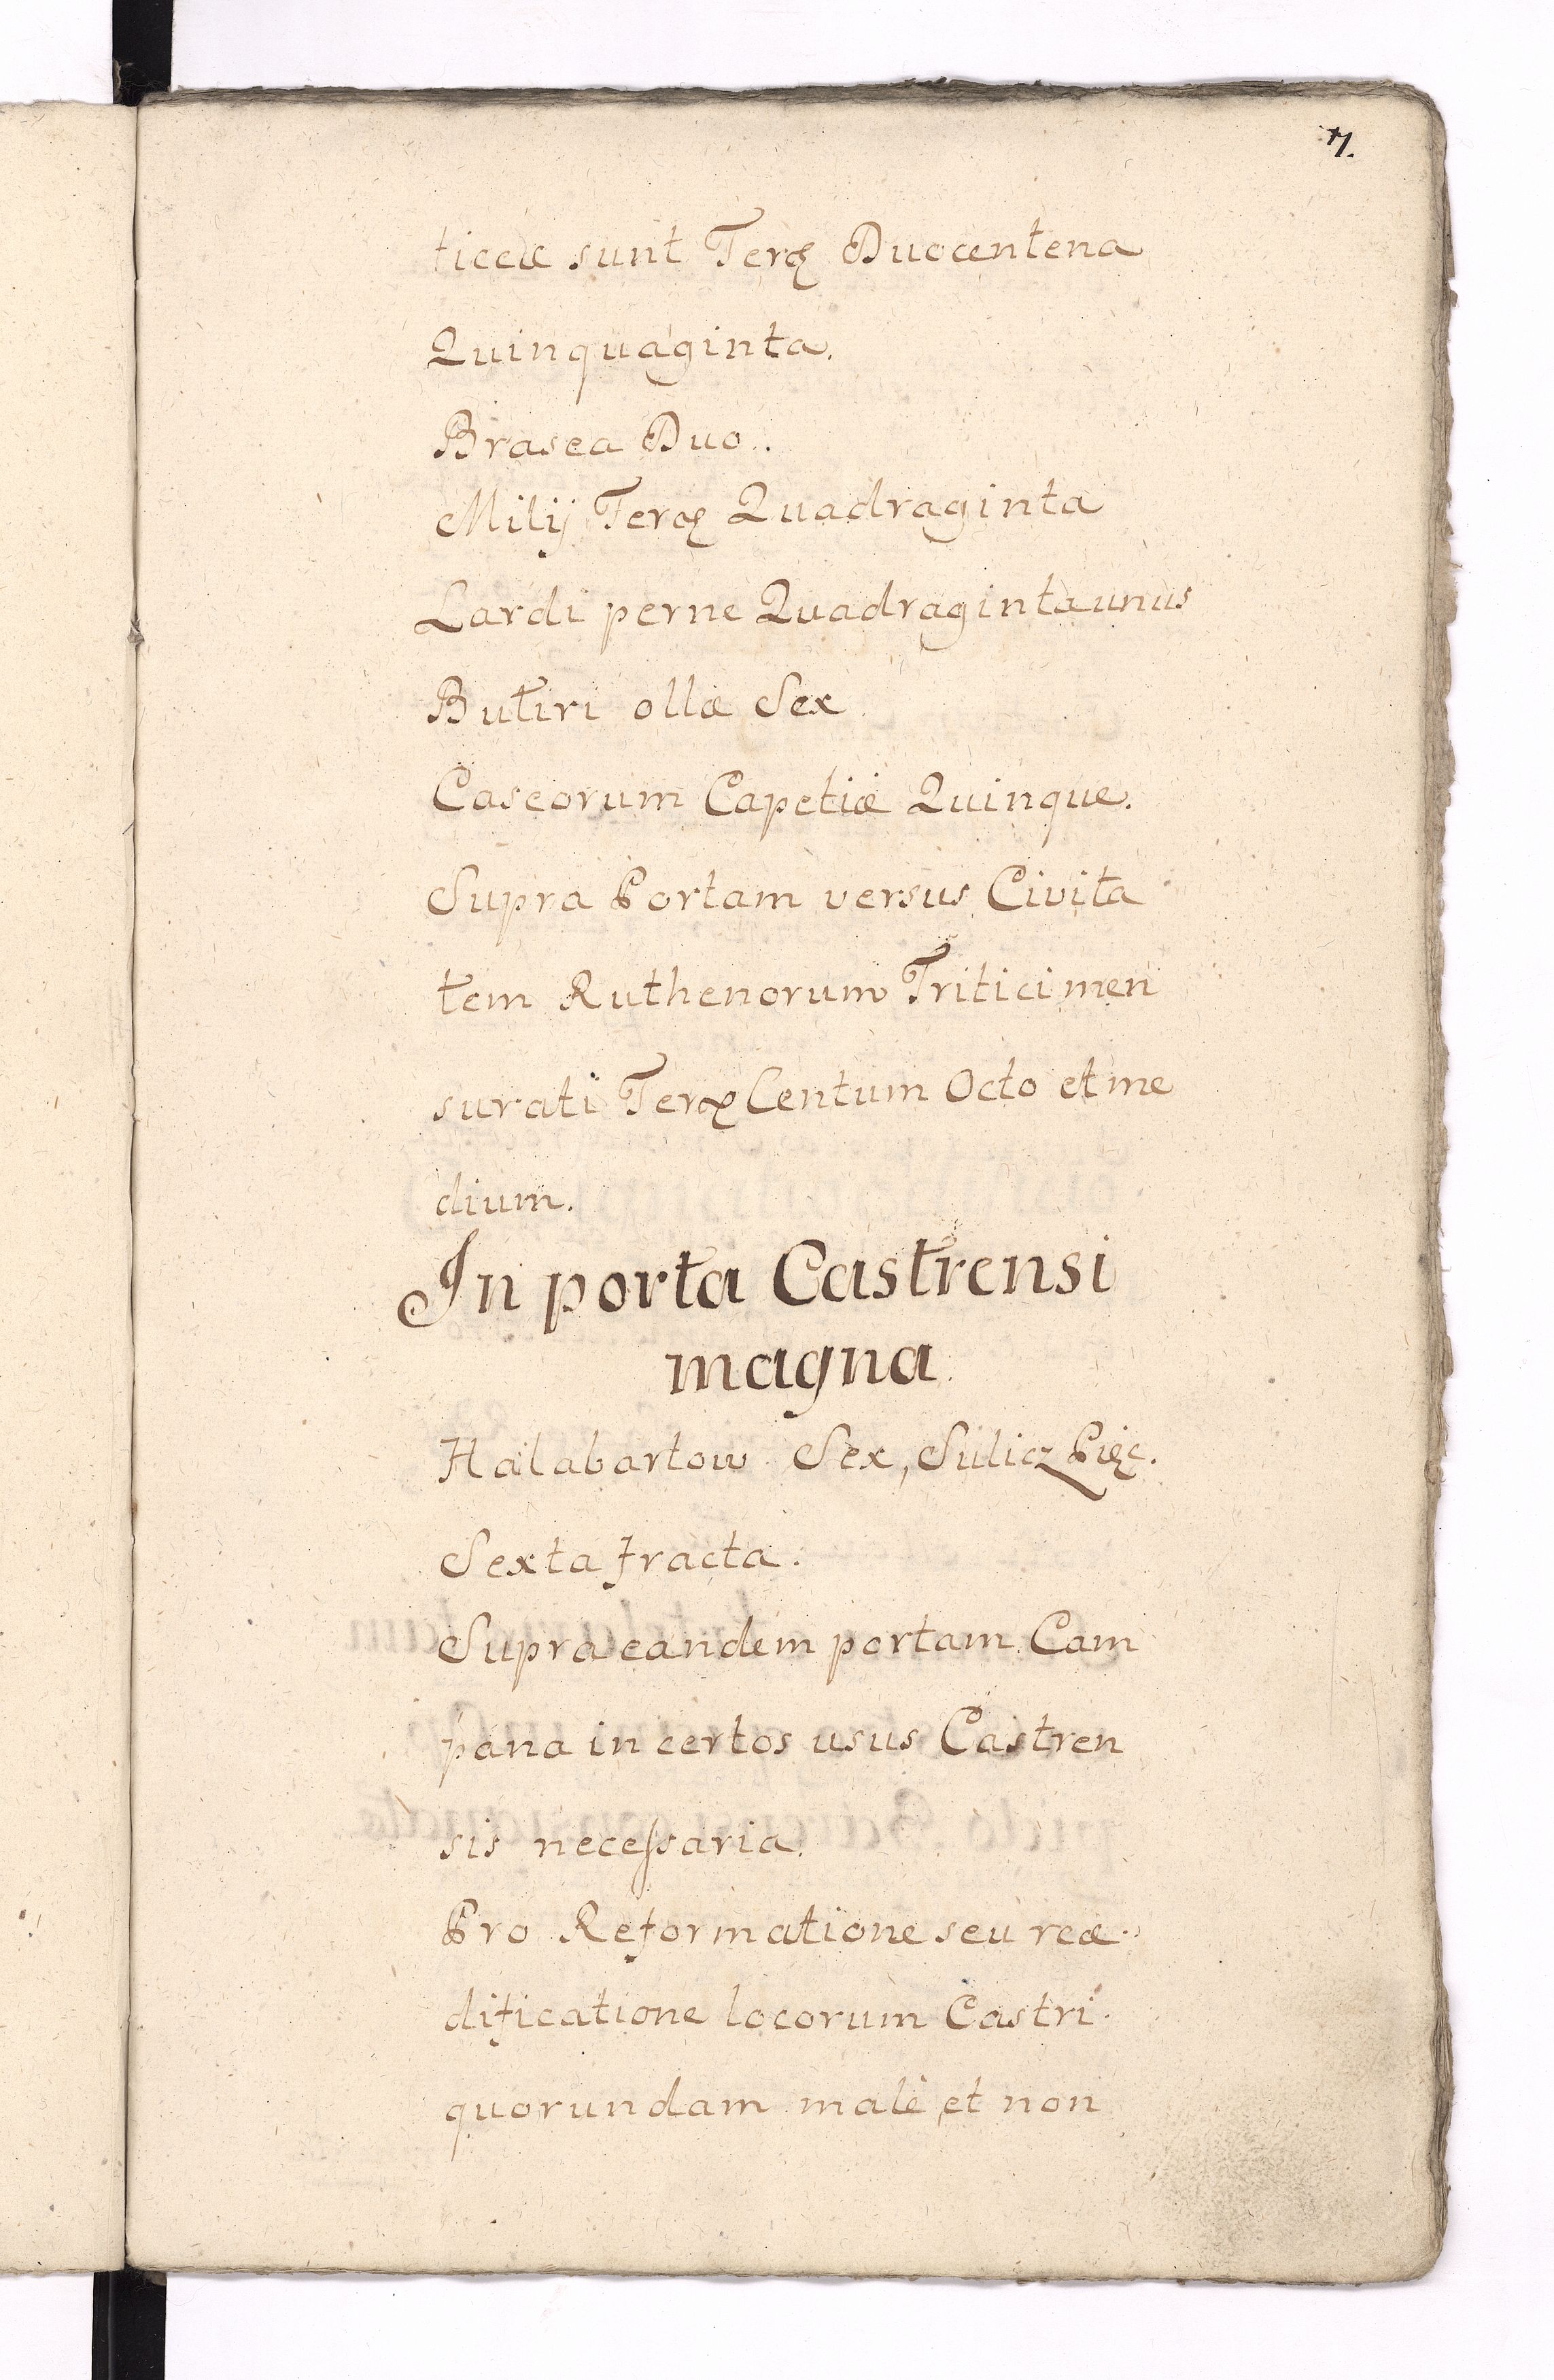 7.
ticeæ sunt Terꝝ Duocentena
Quinquaginta.
Brasea Duo..
Milij Terꝝ Quadraginta
Lardi perne Quadragintaunus
Butiri ollæ Sex
Caseorum Capetiæ Quinque.
Supra Portam versus Civita
tem Ruthenorum Tritici men
surati Terꝝ Centum Octo et me
dium.
In porta Castrensi
magna.
Halabartow Sex, Sulicz Pięc.
Sexta fracta.
Supra eandem portam Cam
pana in certos usus Castren
sis necessaria.
Pro Reformatione seu reæ
dificatione locorum Castri
quorundam male et non